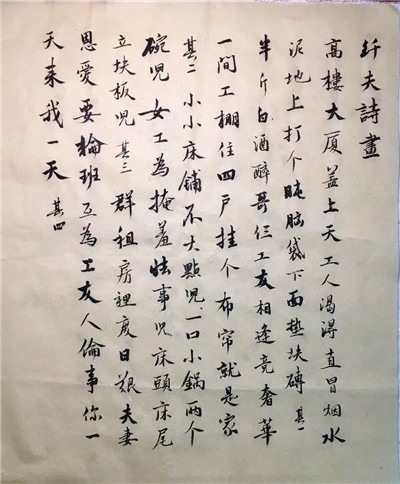 纤夫詩畫
高樓大厦盖上天工人渴得直冒烟水
泥地上打个盹脑袋下面垫块磚 其一
半斤白酒醉哥仨工友相逢竞奢華
一間工棚住四户挂个布帘就是家
其二 小小床鋪不大點児一口小鍋两个
碗児女工為掩羞怯事児床頭床尾
立块板児 其三 群租房裡度日艰夫妻
恩爱要輪班互為工友人倫事你一
天来我一天 其四